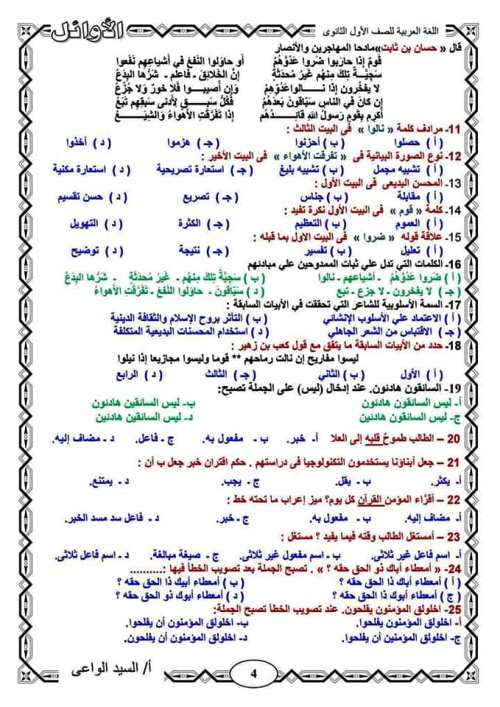 اللغة العربية للصف الأول الثانوى
الأوائل
قال « حسان بن ثابت»مادحا المهاجرين والأنصار
قومٌ إذا حاربوا ضروا عَدُوَّهُمُ أو حاولوا النَّفْعَ في أشياعِهِم نَفَعوا
سَجِيَّةٌ تِلكَ مِنهُم غَيرُ مُحدَثَةٍ إنَّ الخَلائِقَ - فَاعلَم - شَرُّها البِدَعُ
لا يفخَرون إذا نَـــالواعَدُوّهِمُ وَإِن أُصيبـــوا فَلا خورٌ وَلا جُزُعُ
إن كانَ في الناسِ سَبّاقونَ بَعدَهُمُ فَكُلُّ سَبـــقٍ لِأَدنى سَبقِهِم تَبَعُ
أكرِم بِقَومٍ رَسولُ اللَهِ قائِــدُهُم إذا تَفَرَّقَتِ الأَهواءُ وَالشِّيَـــعُ
11- مرادف كلمة « نالوا » في البيت الثالث :
( أ ) حصلوا ( ب ) أحزنوا ( جـ ) هزموا ( د ) أخذوا
12- نوع الصورة البيانية فى « تفرقت الأهواء » فى البيت الأخير :
( أ ) تشبيه مجمل ( ب ) تشبيه بليغ ( جـ ) استعارة تصريحية ( د ) استعارة مكنية
13- المحسن البديعى فى البيت الأول :
( أ ) مقابلة ( ب ) جناس ( جـ ) تصريع ( د ) حسن تقسيم
14- كلمة « قوم » فى البيت الأول نكرة تفيد :
( أ ) العموم ( ب ) التعظيم ( جـ ) الكثرة ( د ) التهويل
15- علاقة قوله « ضروا » فى البيت الاول بما قبله :
( أ ) تعليل ( ب ) تفسير ( جـ ) نتيجة ( د ) توضيح
16- الكلمات التي تدل علي ثبات الممدوحين علي مبادئهم
( أ ) ضروا عَدُوَّهُمُ - أشياعهم - نالوا ( ب ) سَجِيَّةٌ تِلكَ مِنهُم - غَيرُ مُحدَثَةٍ - شَرُّها البِدَعُ
( جـ ) لا يفخرون - لا جزع - تبع ( د ) سَبّاقونَ - حاولوا النَّفعَ - تَفَرَّقَتِ الأَهواءُ
17- السمة الأسلوبية للشاعر التي تحققت في الأبيات السابقة :
( أ ) الاعتماد علي الأسلوب الإنشائي ( ب ) التأثر بروح الإسلام والثقافة الدينية
( جـ ) الاقتباس من الشعر الجاهلي ( د ) استخدام المحسنات البديعية المتكلفة
18- حدد من الأبيات السابقة ما يتفق مع قول كعب بن زهير :
ليسوا مفاريح إن نالت رماحهم ** قوما وليسوا مجازيعا إذا نيلوا
( أ ) الأول ( ب ) الثاني ( جـ ) الثالث ( د ) الرابع
19- السائقون هادئون. عند إدخال (ليس) علي الجملة تصبح:
أ- ليس السائقون هادئون ب- ليس السائقين هادئون
ج- ليس السائقون هادئين د- ليس السائقين هادئين
20 – الطالب طموحٌ قلبه إلى العلا أ- خبر. ب - مفعول به. ج - فاعل. د - مضاف إليه.
21 – جعل أبناؤنا يستخدمون التكنولوجيا فى دراستهم . حكم اقتران خبر جعل ب أن :
أ- يكثر. ب - يقل. ج - يجب. د - يمتنع.
22 – أقرَّاء المؤمن القرآن كل يوم؟ ميز إعراب ما تحته خط :
أ- مضاف إليه. ب - مفعول به. ج - خبر. د - فاعل سد مسد الخبر.
23 – أمستغل الطالب وقته فيما يفيد ؟ مستغل :
أ- اسم فاعل غير ثلاثى. ب - اسم مفعول غير ثلاثى. ج - صيغة مبالغة. د - اسم فاعل ثلاثى.
24- « أمعطاء أباك ذو الحق حقه ؟ » . تصبح الجملة بعد تصويب الخطأ فيها :..........
( أ ) أمعطاء أباك ذا الحق حقه ؟ ( ب ) أمعطاء أبيك ذا الحق حقه ؟
( ج ) أمعطاء أبوك ذا الحق حقه ؟ ( د ) أمعطاء أبوك ذو الحق حقه ؟
25- اخلولق المؤمنون يفلحون. عند تصويب الخطأ تصبح الجملة:
أ- اخلولق المؤمنون أن يفلحوا. ب- اخلولق المؤمنون أن يفلحوا.
ج- اخلولق المؤمنين أن يفلحوا. د- اخلولق المؤمنون أن يفلحون.
4
أ/ السيد الواعى